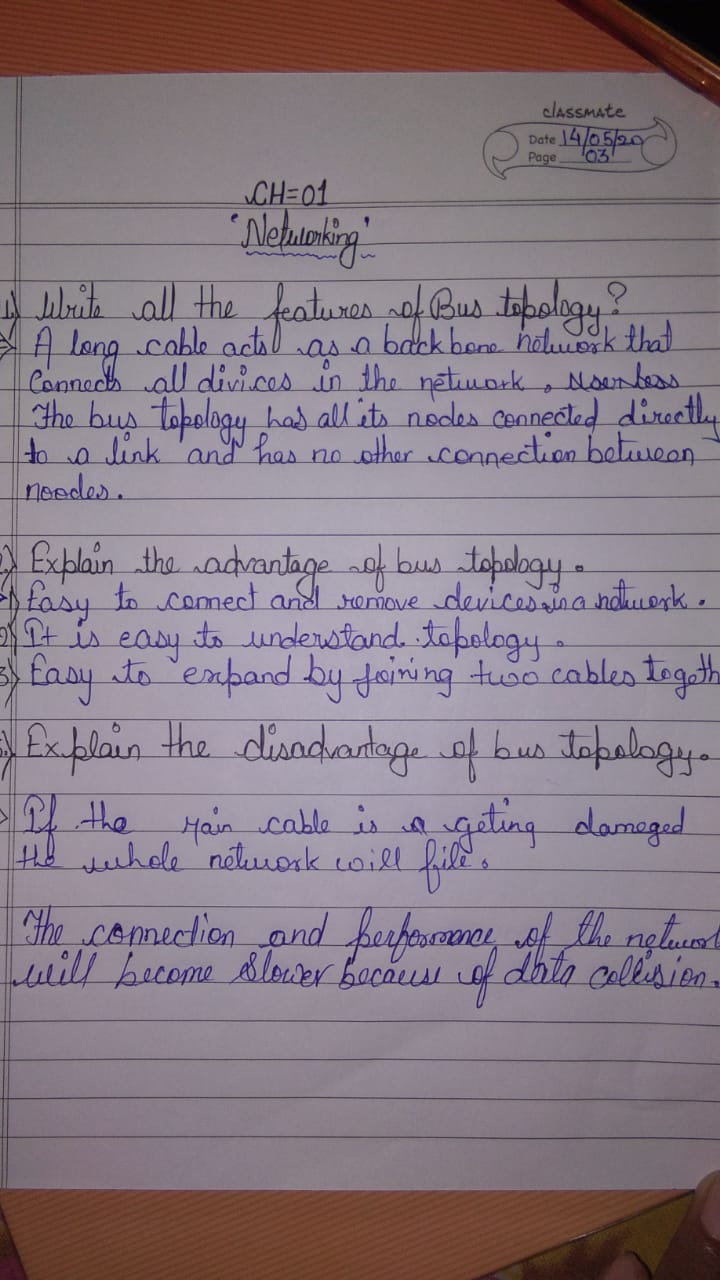 classmate
Date 14/05/20
Page 03
CH=01
'Networking'
1) Write all the features of Bus topology?
A long cable acts as a backbone network that
Connects all divices in the network,
The bus topology has all its nodes connected directly
to a link and has no other connection between
noodes.
2) Explain the advantage of bus topology.
1) Easy to connect and remove devices in a network.
2) It is easy to understand topology.
3) Easy to expand by joining two cables togeth
Explain the disadvantage of bus topology.
If the Main cable is a geting dameged
the whole network will file.
The connection and performance of the networ
will become slower because of data collision.